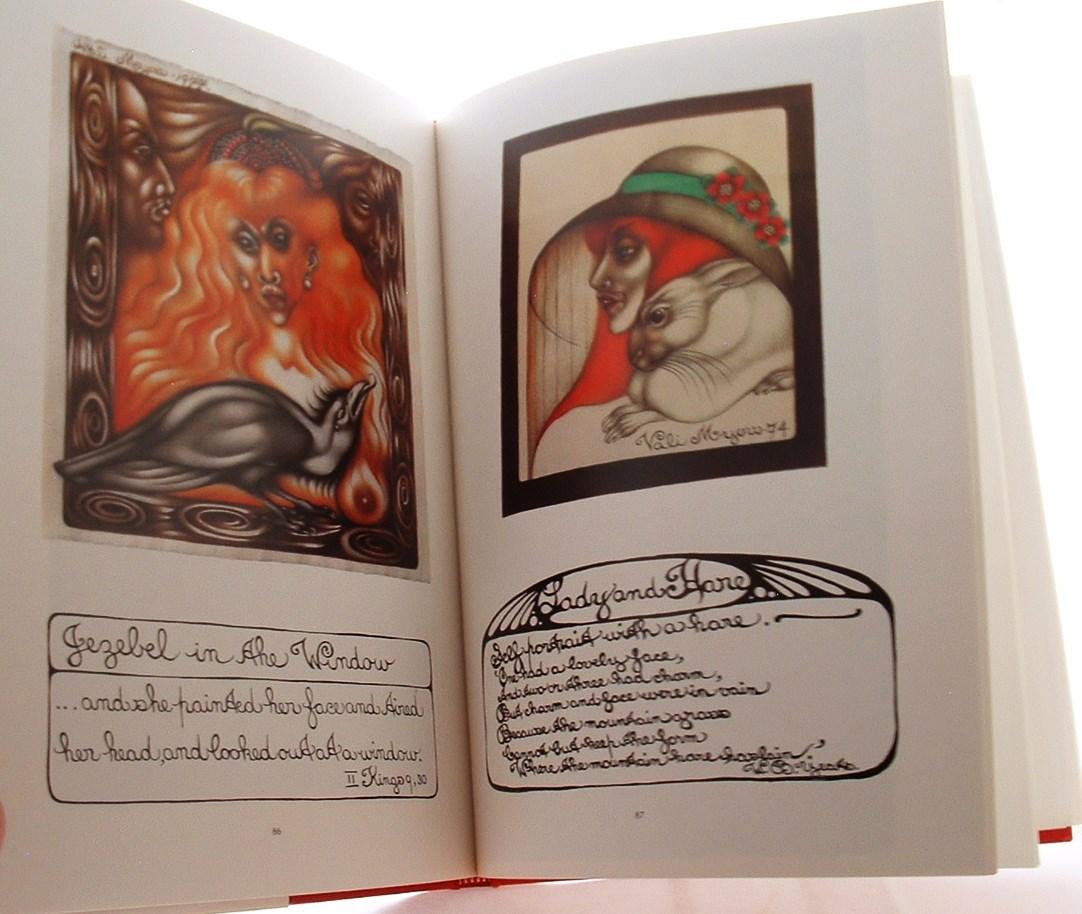 Vali Myers
Jezebel in the Window
...and she painted her face and tired
her head, and looked out at a window.
II Kings 9, 30
86
Vali Myers 74
Lady and Hare
Self portrait with a hare.
One had a lovely face,
And two or three had charm,
But charm and face were in vain
Because the mountain grass
Cannot but keep the form
Where the mountain hare has lain.
W. B. Yeats.
87